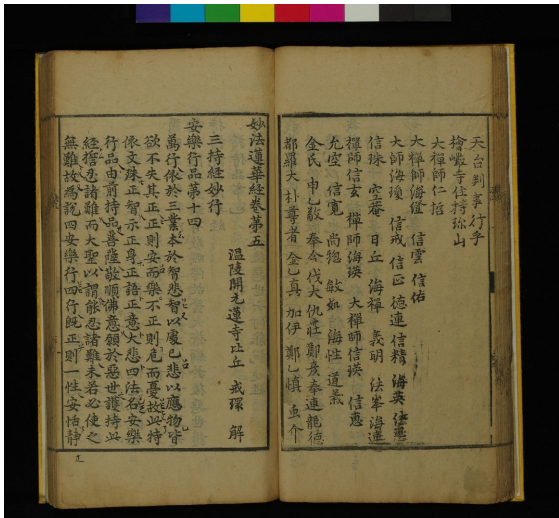 天台判事行乎
檜巖寺住持弥山
大禪師仁哲
大禪師海僅 信雲 信祐
大師海瓊 信戒 信正 德連 信精 海英 法惠
信珠 空菴 日丘 海禪 義明 法峯 海連
禪師信玄 禪師海瑛 大禪師信瑛 信惠
允空 信寬 尚惚 啟如 海性 道義
金氏 申乙敬 奉念 伐大 仇莊 鄭 奉連 龍德
都羅大 朴尊者 金乙真 加伊 鄭乙慎
妙法蓮華經卷第五
溫陵開元蓮寺比丘 戒環 解
三持經妙行
安樂行品第十四
萬行依於三業本於智悲智以處己悲以應物皆
欲不失其正正則安而樂不正則危而憂故此持
依文殊正智示正身正語正意大悲四法名安樂
行品由前持品菩薩敬順佛意願於惡世護持此
經誓忍諸難而大聖以謂能忍諸難未若必使之
無難故為說四安樂行四行既正則一性安恬靜